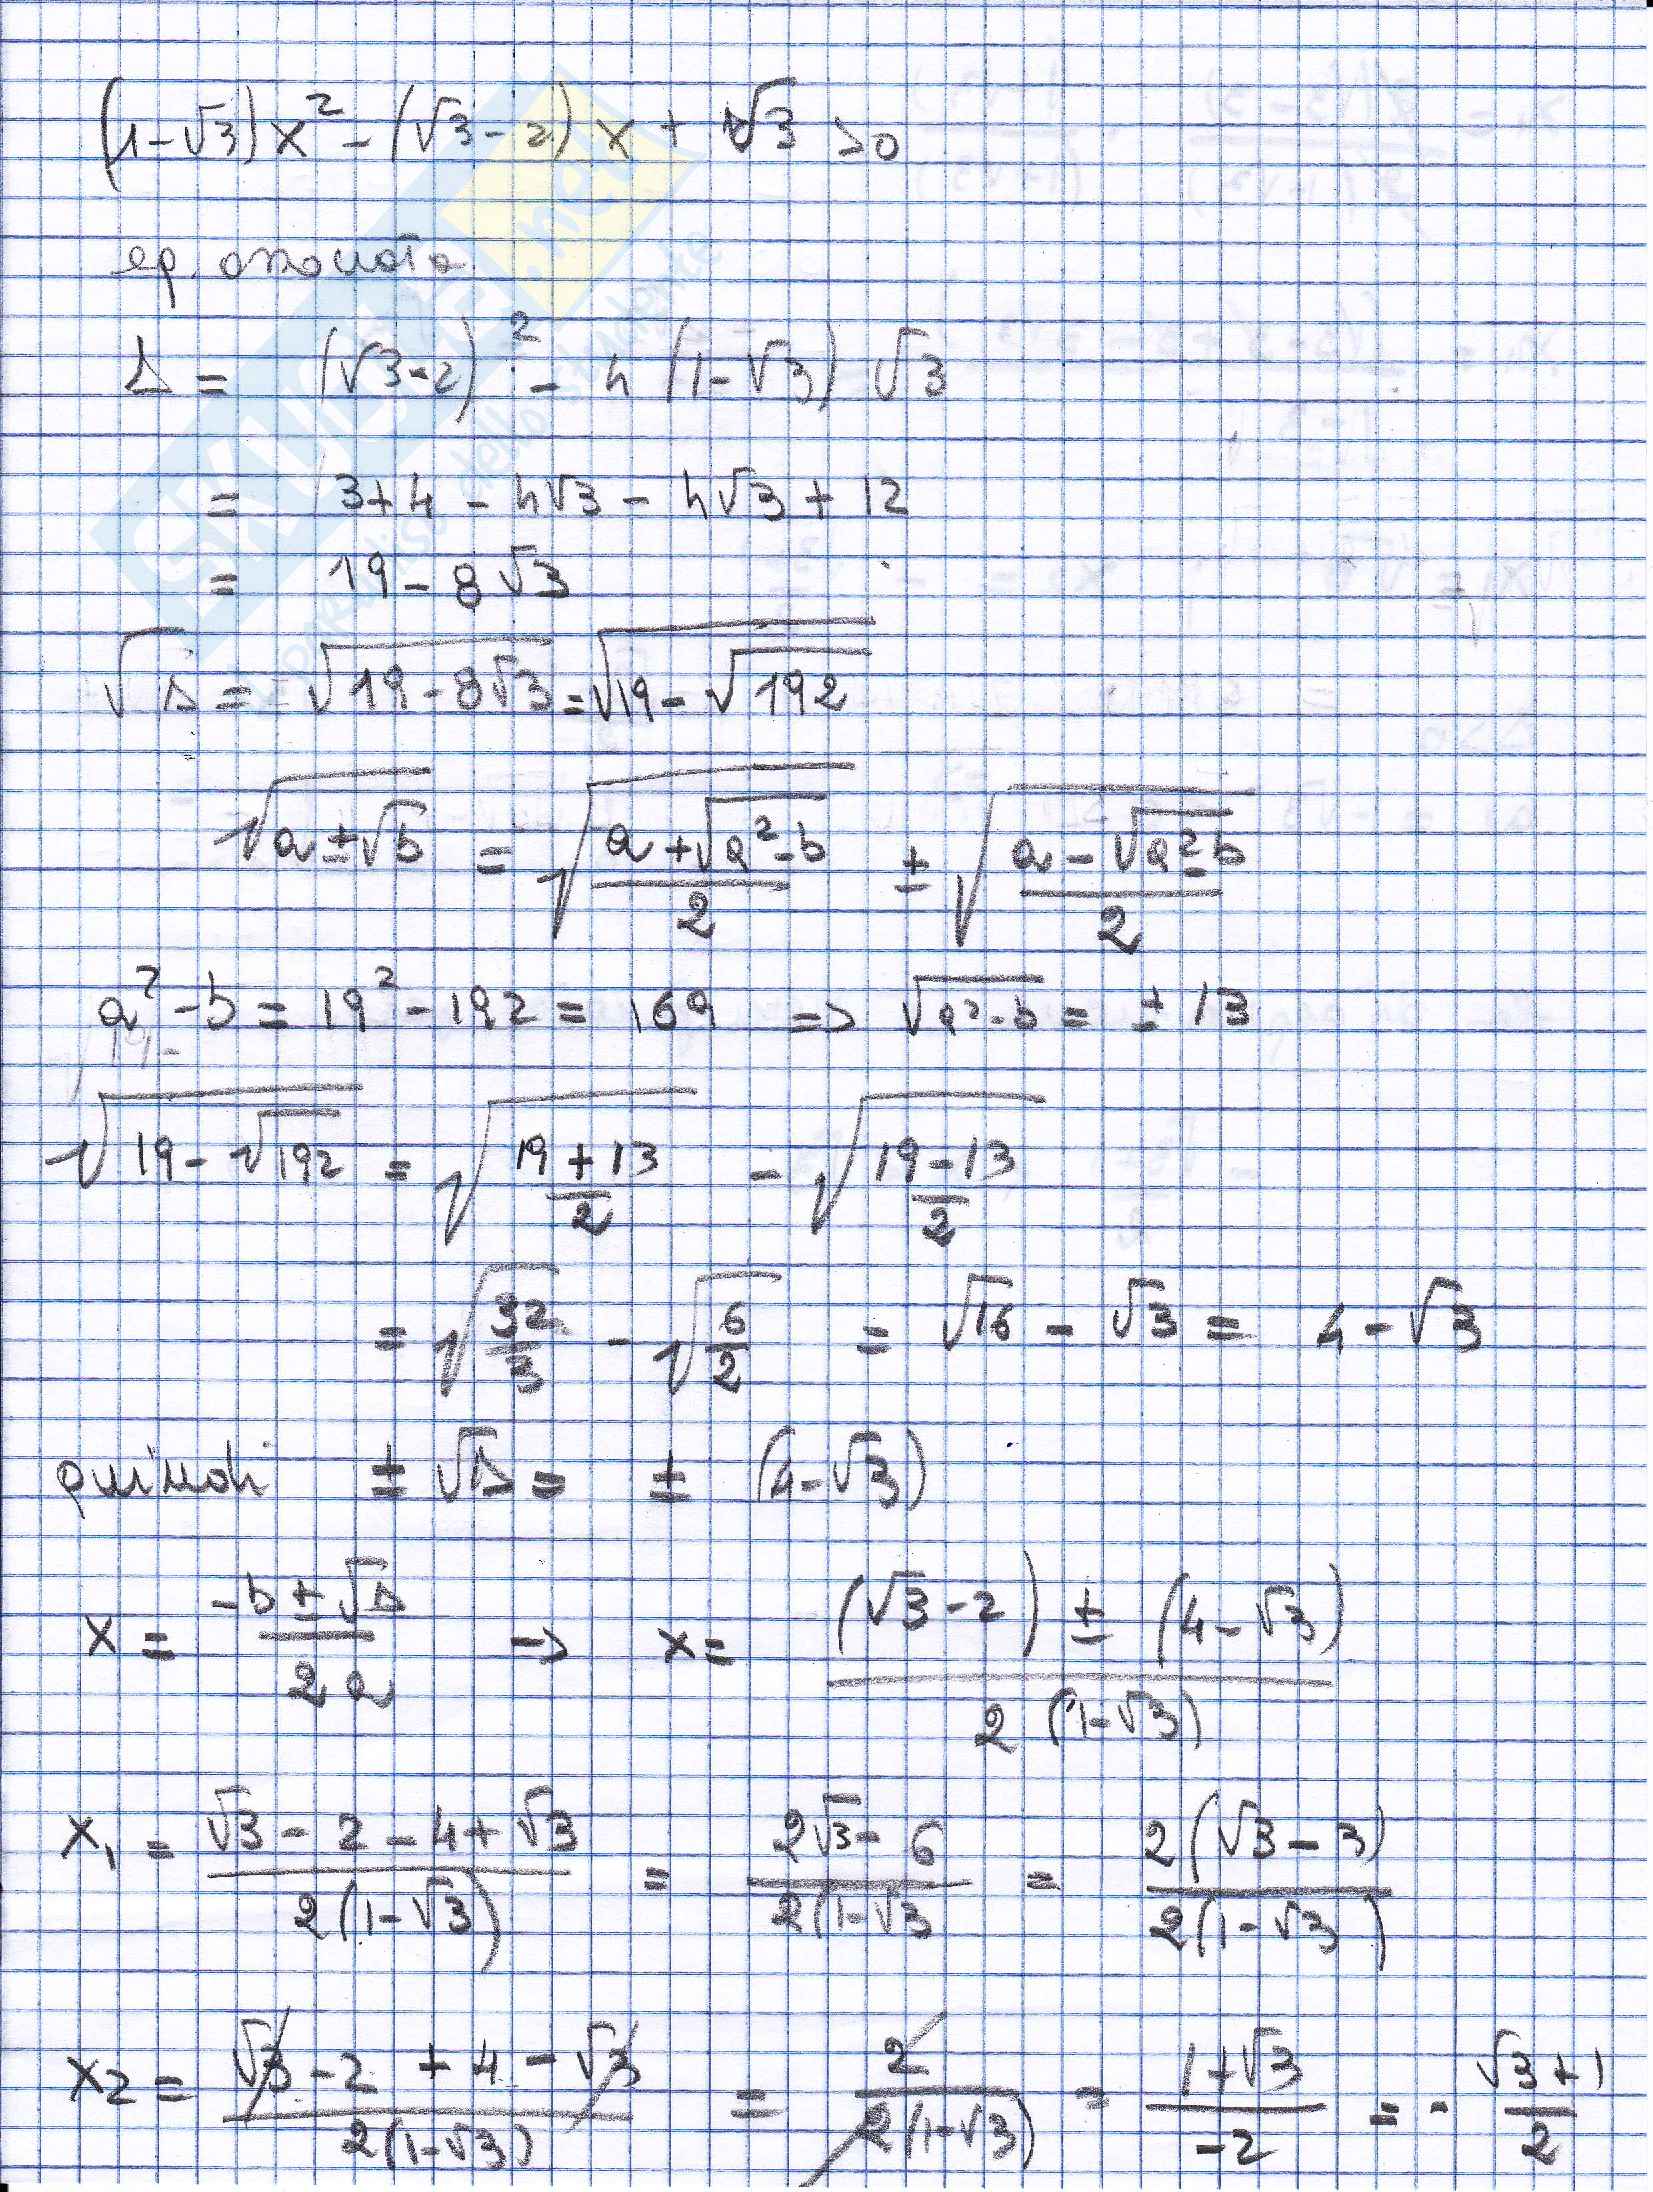 (1-√3)x² - (√3-2)x + √3 >0
eq. associata
Δ = (√3-2)² - 4(1-√3)√3
= 3+4-4√3-4√3+12
= 19-8√3
√Δ = √(19-8√3) = √(19-√192)
√(a±√b) = √((a+√(a²-b))/2) ± √((a-√(a²-b))/2)
a²-b = 19²-192 = 169 => √(a²-b) = ±13
√(19-√192) = √((19+13)/2) - √((19-13)/2)
= √(32/3) - √(6/2) = √16 - √3 = 4-√3
quindi ±√Δ = ±(4-√3)
x = (-b±√Δ)/2a -> x = ((√3-2)±(4-√3))/(2(1-√3))
x₁ = (√3-2-4+√3)/(2(1-√3)) = (2√3-6)/(2(1-√3) = (2(√3-3))/(2(1-√3))
x2 = (√3-2+4-√3)/(2(1-√3)) = 2/(2(1-√3)) = (1+√3)/-2 = -(√3+1)/2